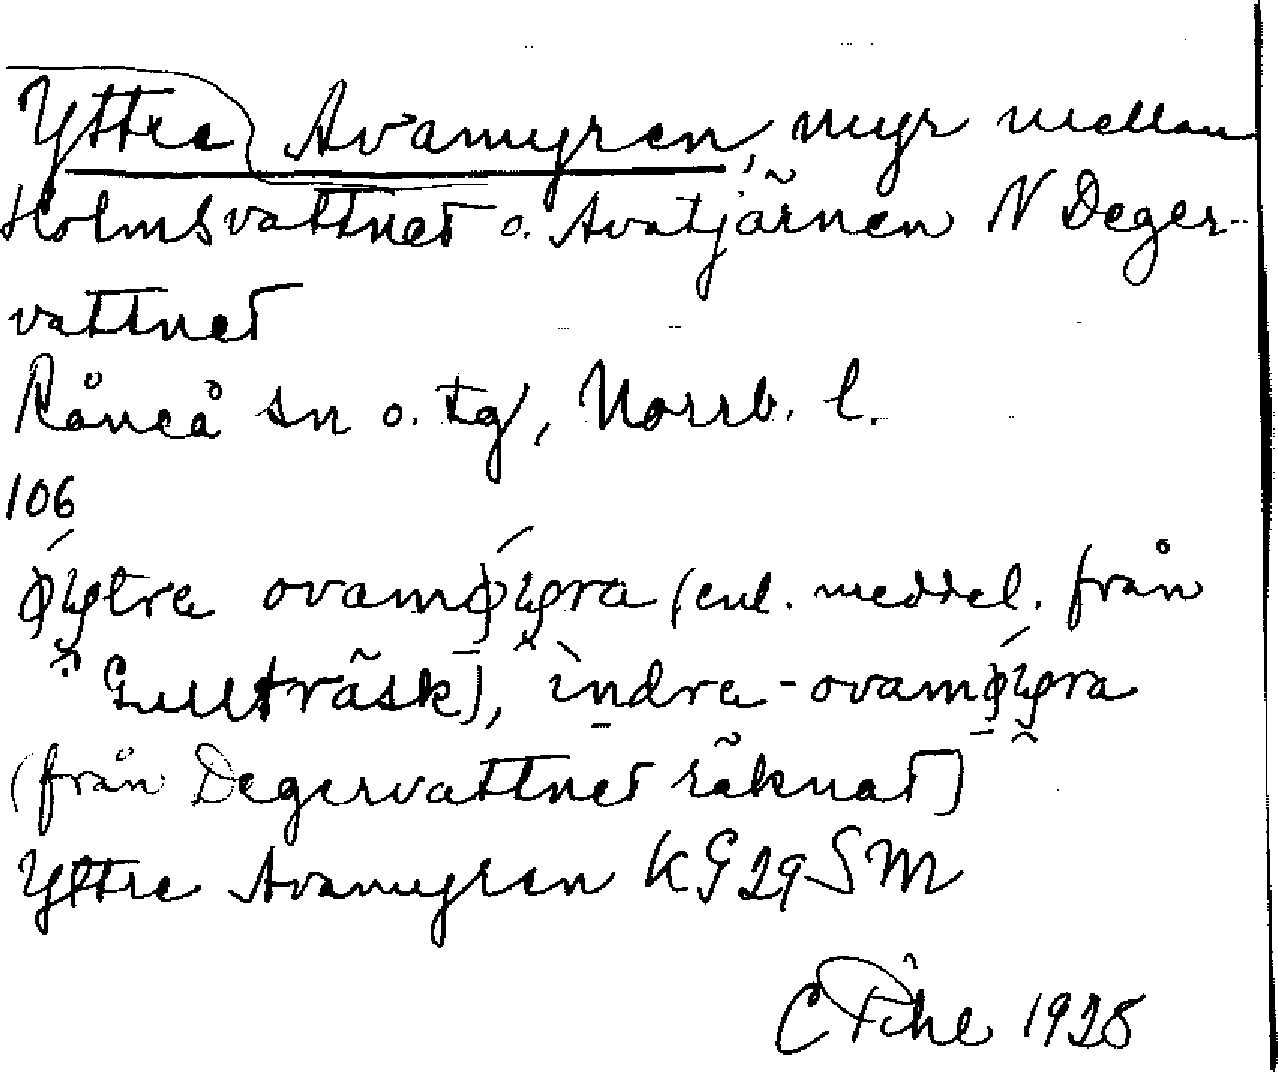 Yttre Avamyren, myr mellan
Holmsvattnet o. Avatjärnen N Deger-
vattnet
Råneå sn o. tg, Norrb. l.
106
ovam (enl. meddel. från
träsk), indre-ovam
(från Degervattnet räknat)
Yttre Avamyren KG29SM
C Pihl 1928